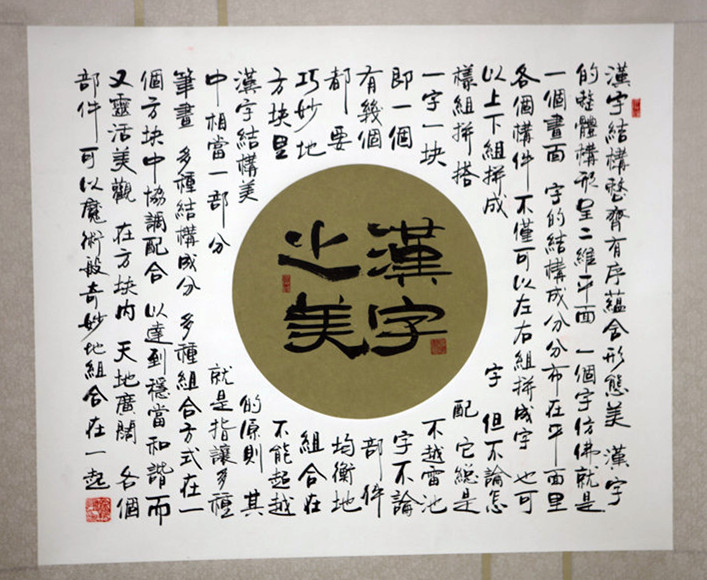 漢字結構整齊有序蘊含形態美 漢字
的整體構形呈二維平面 一個字仿佛就是
一個畫面 字的結構成分分布在平面里
各個構件 不僅可以左右組拼成字 也可
以上下組拼成 字 但不論怎
樣組拼搭 配 它總是
一字一块 不越雷池
即一個 字不論
有幾個 部件
都要 均衡地
巧妙地 組合在
方块里 不能超越
漢字結構美 的原則 其
中相當一部分 就是指讓多種
筆畫 多種結構成分 多種組合方式在一
個方块中協調配合 以達到穩當和諧而
又靈活美觀 在方块内 天地廣闊 各個
部件可以魔術般奇妙地組合在一起
漢字
之美